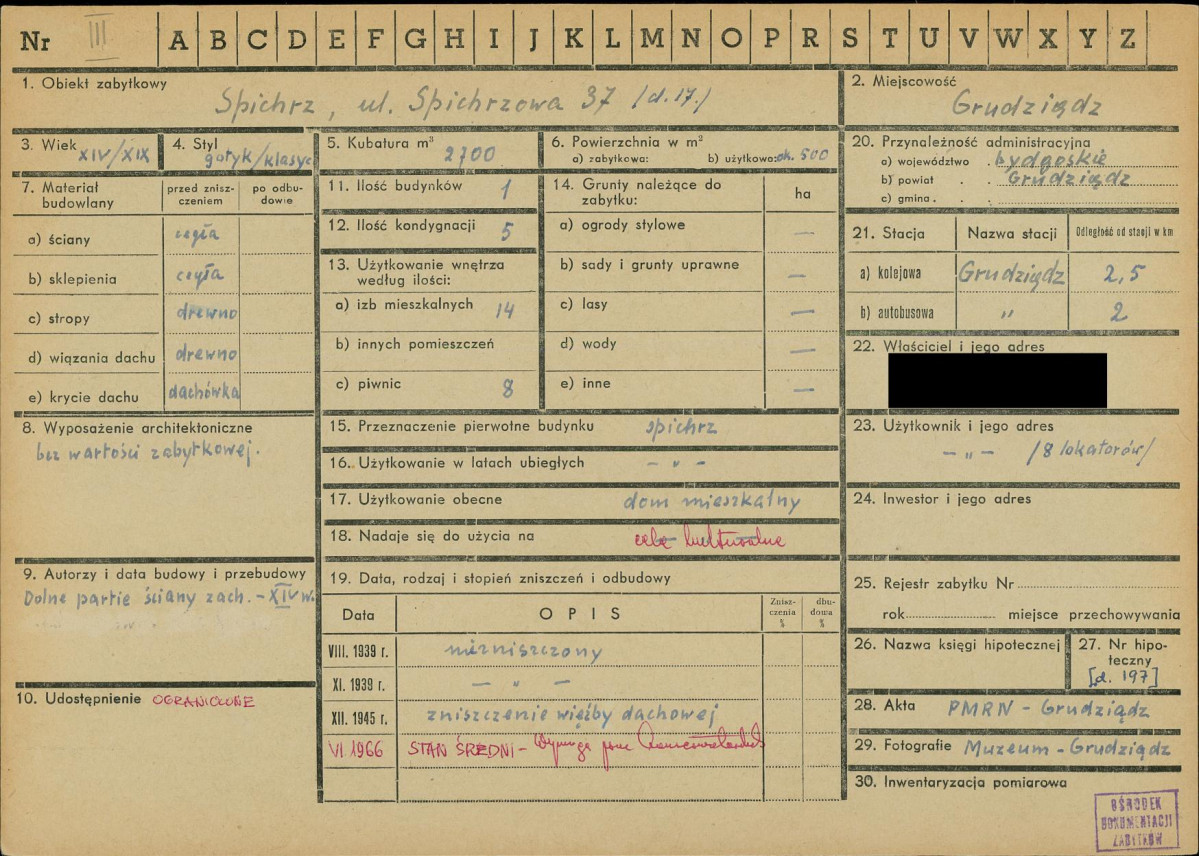 Nr III A B C D E F G H I J K L M N O P R S T U V W X Y Z
1. Obiekt zabytkowy
Spichrz, ul. Spichrzowa 37 /d. 17./
2. Miejscowość
Grudziądz
3. Wiek XIV/XIX
4. Styl gotyk/klasyc
5. Kubatura m³ 2700
6. Powierzchnia w m²
a) zabytkowa: b) użytkowa: ok. 500
7. Materiał budowlany
przed znisz-
czeniem
po odbu-
dowie
a) ściany cegła
b) sklepienia cegła
c) stropy drewno
d) wiązania dachu drewno
e) krycie dachu dachówka
8. Wyposażenie architektoniczne
bez wartości zabytkowej.
9. Autorzy i data budowy i przebudowy
Dolne partie ściany zach. - XIV w.
10. Udostępnienie OGRANICZONE
11. Ilość budynków 1
12. Ilość kondygnacji 5
13. Użytkowanie wnętrza
według ilości:
a) izb mieszkalnych 14
b) innych pomieszczeń
c) piwnic 8
14. Grunty należące do
zabytku:
ha
a) ogrody stylowe —
b) sady i grunty uprawne —
c) lasy —
d) wody —
e) inne —
15. Przeznaczenie pierwotne budynku spichrz
16. Użytkowanie w latach ubiegłych - „ -
17. Użytkowanie obecne dom mieszkalny
18. Nadaje się do użycia na cele kulturalne
19. Data, rodzaj i stopień zniszczeń i odbudowy
Data OPIS
Znisz-
czenia
%
dbu-
dowa
%
VIII. 1939 r. niezniszczony
XI. 1939 r. — „ —
XII. 1945 r. zniszczenie więźby dachowej
VI 1966 STAN ŚREDNI - Wymaga prac
20. Przynależność administracyjna
a) województwo bydgoskie
b) powiat Grudziądz
c) gmina
21. Stacja Nazwa stacji Odległość od stacji w km
a) kolejowa Grudziądz 2,5
b) autobusowa „ 2
22. Właściciel i jego adres
23. Użytkownik i jego adres
- „ - /8 lokatorów/
24. Inwestor i jego adres
25. Rejestr zabytku Nr
rok miejsce przechowywania
26. Nazwa księgi hipotecznej
27. Nr hipo-
teczny
[d. 197]
28. Akta PMRN - Grudziądz
29. Fotografie Muzeum - Grudziądz
30. Inwentaryzacja pomiarowa
OŚRODEK
DOKUMENTACJI
ZABYTKÓW